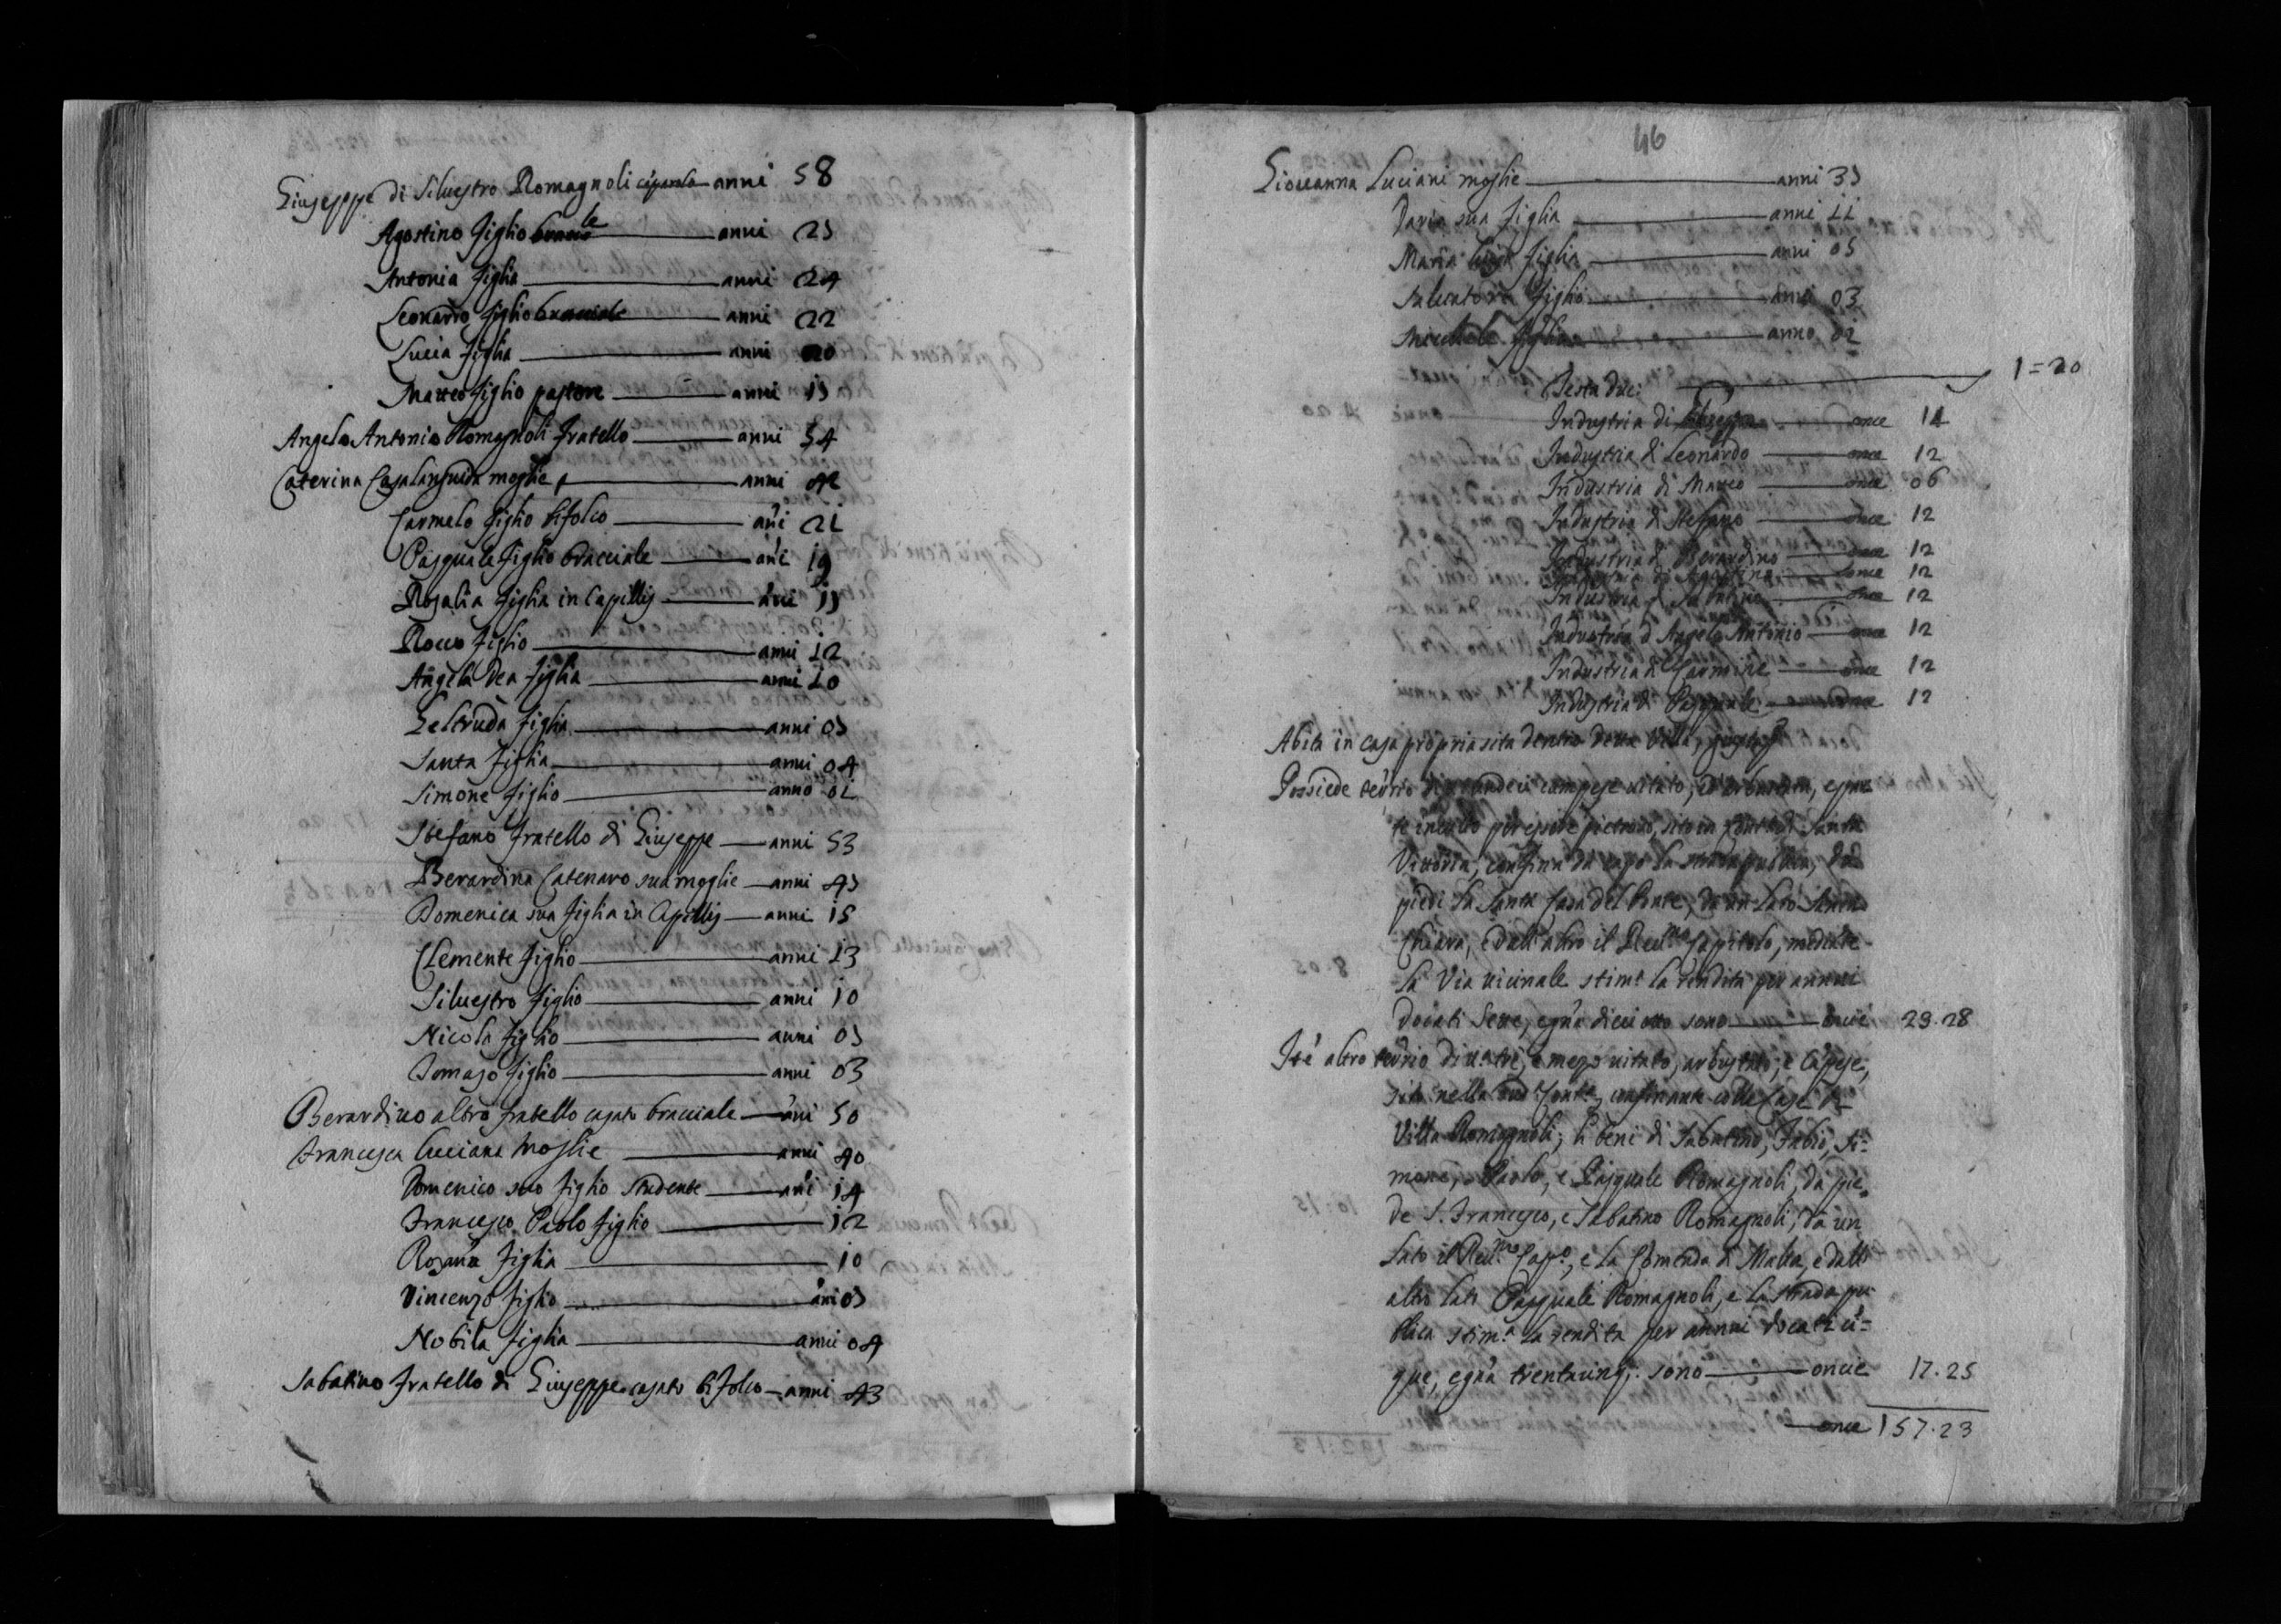 Giuseppe di Siluestro Romagnoli anni 58
Agostino figlio anni 25
Antonia figlia anni 24
Leonardo figlio bracciale anni 22
Lucia figlia anni 20
Matteo figlio pastore anni 15
Angelo Antonio Romagnoli fratello anni 54
Caterina Casalanguida moglie anni 42
Carmelo figlio bifolco añi 21
Pasquale figlio bracciale añi 19
Rosalia figlia in Capillis añi 15
Rocco figlio anni 12
Angela Dea figlia anni 10
Geltruda figlia anni 05
Santa figlia anni 04
Simone figlio anno 01
Stefano fratello di Giuseppe anni 53
Berardina Catenaro sua moglie anni 45
Domenica sua figlia in Capillis anni 15
Clemente figlio anni 13
Siluestro figlio anni 10
Nicola figlio anni 05
Tomaso figlio anni 03
Berardino altro fratello casato bracciale añi 50
Francesca Luciana Moglie anni 40
Domenico suo figlio studente añi 14
Francesco Paolo figlio 12
Rosana figlia 10
Vincenzo figlio añi 05
Nobila figlia anni 04
Sabatino fratello di Giuseppe casato bifolco anni 43
46
Giouanna Luciani moglie anni 35
Daria sua figlia anni 11
Maria figlia anni 05
Saluatore figlio anni 03
anno 01
Testa duci 1=20
Industria di once 14
Industria di Leonardo once 12
Industria di Matteo once 06
Industria di Stefano once 12
Industria di Berardino once 12
Industria di Agostino once 12
Industria di Sabatino once 12
Industria d Angelo Antonio once 12
Industria di Carmine once 12
Industria di Pasquale once 12
Abita in casa propria sita dentro detta Villa,
Possiede campese uitato,
te inculto per essere pietroso, sito in Santa
Vittoria, confina da capo la strada publica, da
piedi la Santa Casa del Ponte, da un lato Santa
Chiara, e dall'altro il Reu.mo Capitolo, mediante
la Via uicinale stim.a la rendita per annui
Docati Sette, e gña dieciotto sono oncie 29.28
Ité altro e mezo uitato, arbustato, e Capese,
sito nella confinante colle Case di
Villa Romagnoli, li beni di Sabatino, Fabio, Si=
mone, Paolo, e Pasquale Romagnoli, da pie
de S. Francesco, e Sabatino Romagnoli, da un
lato il Reu.mo Cap.o, e la Comenda di Malta, e dall'
altro lato Pasquale Romagnoli, e la strada pu
blica stim.a la rendita per annui docati cĩ=
que, e gña trentacinq. sono oncie 17.25
once 157.23